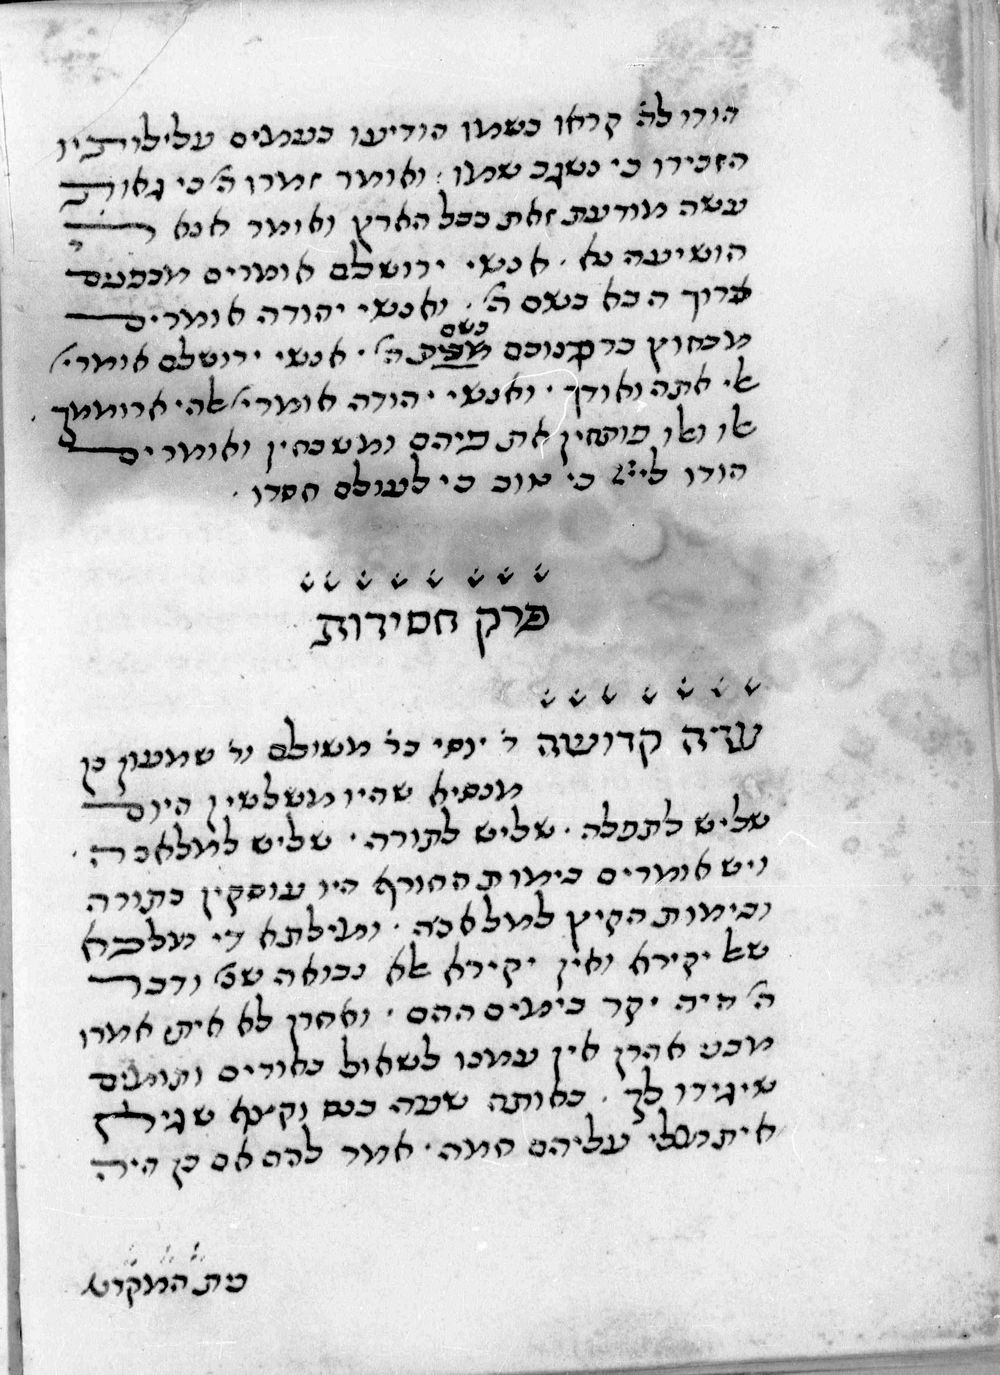 הודו לה' קראו בשמו הודיעו בעמים עלילותיו
הזכירו כי נשגב שמו: ואומר זמרו ה' כי גאות
עשה מודעת זאת בכל הארץ ואומר אנא ה'
הושיעה נא. אנשי ירושלם אומרים מבפנים
ברוך הבא בשם ה'. ואנשי יהודה אומרים
מבחוץ ברכנוכם מבית ה'. אנשי ירושלם אומרי'
בשם
אלי אתה ואודך. ואנשי יהודה אומרי' אלהי ארוממך.
אלו ואלו פותחין את פיהם ומשבחין ואומרים
הודו ליי' כי טוב כי לעולם חסדו.
פרק חסידות
עדה קדושה ר' יוסי בר' משולם ור' שמעון בן
מנסיא שהיו משלשין היום
שליש לתפלה. שליש לתורה. שליש למלאכה.
ויש אומרים בימות החורף היו עוסקין בתורה
ובימות הקיץ למלאכה. ומילתא די מלכא
שאל יקירא ואין יקירא אלא נבואה שנ' ודבר
ה' היה יקר בימים ההם. ואחרן לא איתי אמרו
אהרן אין עמנו לשאול באורים ותומים
שיגידו לך. באותה שעה בנס וקצף
איתמלי עליהם חמה. אמר להם אם כן היה
בית המקדש